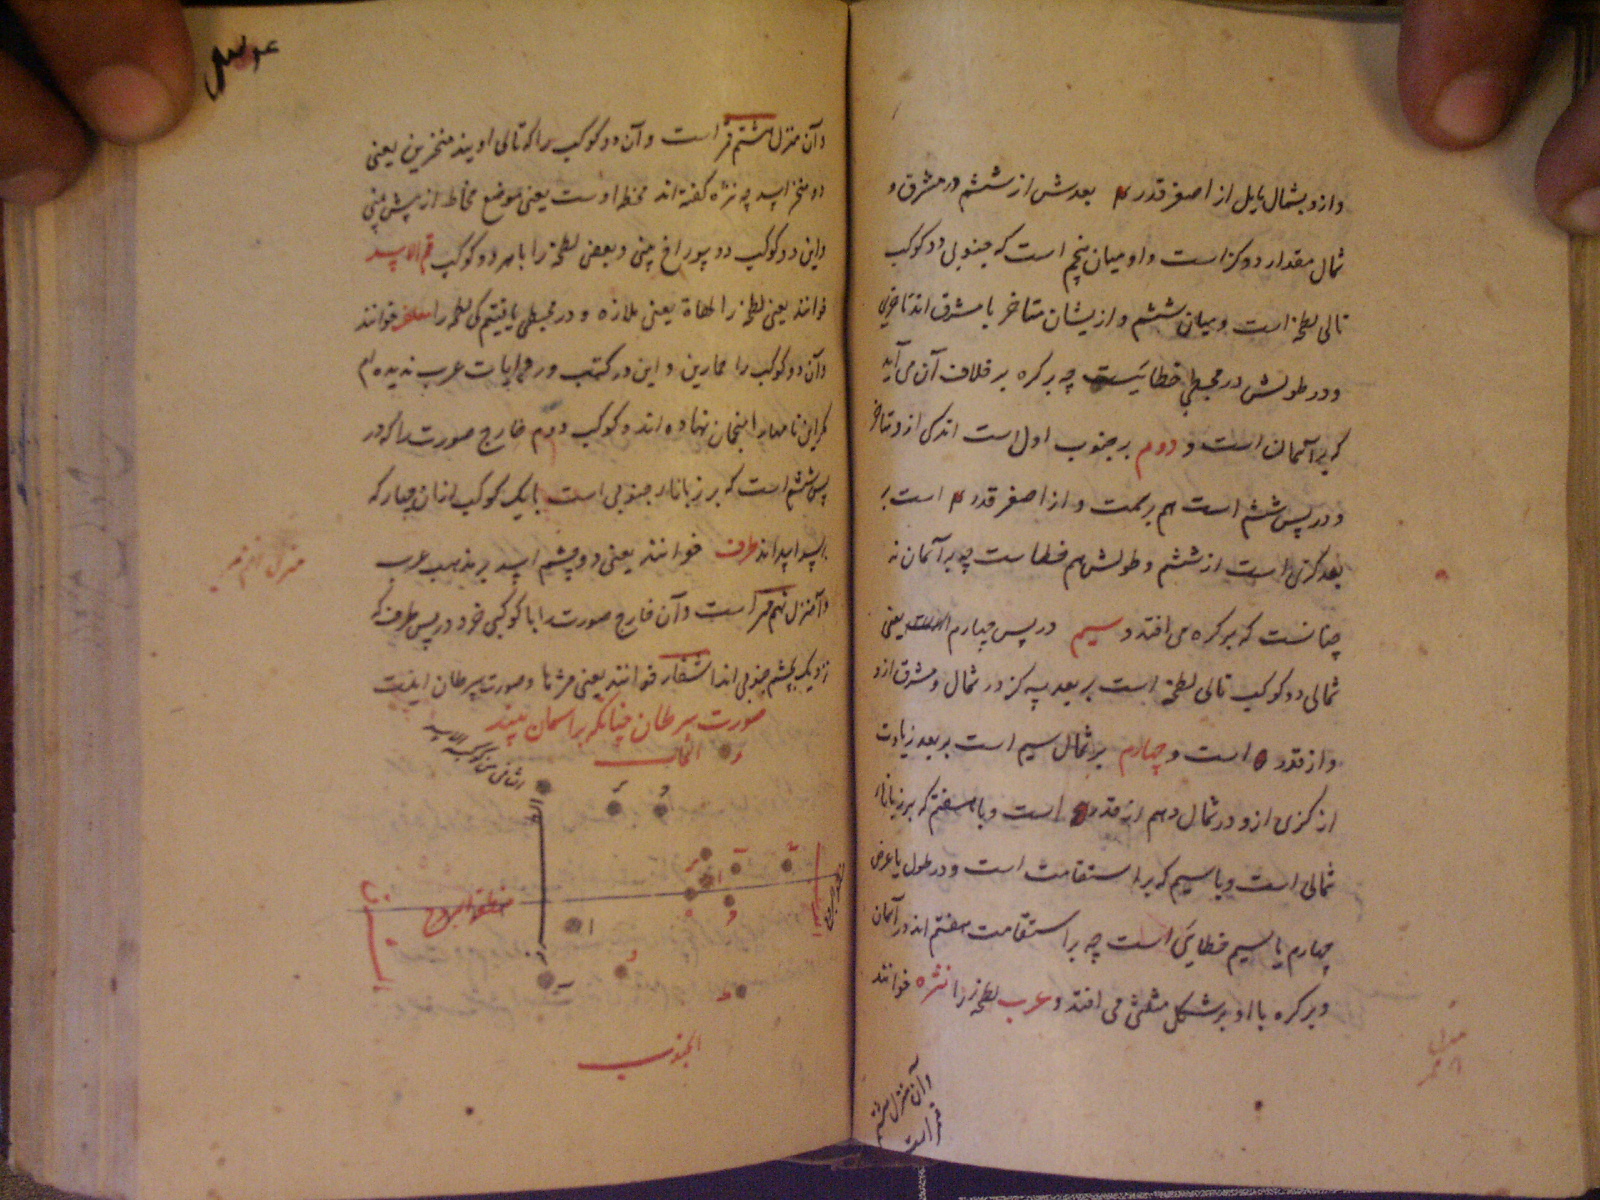 و ازو بشمال مایل از اصغر قدر ۴ بعدش از ششم در مشرق و
شمال مقدار دو کز است و او میان پنجم است که جنوبی دو کوکب
تالی لطخه است و میان ششم و ازیشان متاخر با مشرق اند تاخری
و در طولش در مجسطی خطائیست چه بر کره بر خلاف آن می آید
که بر آسمان است و دوم بر جنوب اول است اندکی ازو متاخر
و در پس ششم است هم بر سمت و از اصغر قدر ۴ است بر
بعد کزی است از ششم و طولش هم خطاست چه بر آسمان نه
چنانست که بر کره می افتد و سیم در پس چهارم است یعنی
شمالی دو کوکب تالی لطخه است بر بعد سه کز در شمال و مشرق ازو
و از قدر ۵ است و چهارم بر شمال سیم است بر بعد زیادت
از کزی ازو و در شمال دهم از قدر ۵ است و با هفتم که بر زبانا
شمالی است و با سیم که بر استقامت است و در طول یا عرض
چهارم یا سیم خطایی است چه بر استقامت هفتم اند در آسمان
و بر کره با او بر شکل مثلثی می افتد و عرب لطخه را نثره خوانند
وآن منزل هشتم
قمر است
منزل
۸ قمر
وآن منزل هشتم قمر است وآن دو کوکب را که تالی اویند منخرین یعنی
دو منخر اسد چه نثره گفته اند مخط اوست یعنی موضع مخاط از پیش بینی
و این دو کوکب دو سوراخ بینی و بعضی لطخه را با هر دو کوکب فم الاسد
خوانند یعنی لطخه را لهاة یعنی ملازه و در مجسطی یافتیم که لطخه را معلف خوانند
وآن دو کوکب را حمارین و این در کتب و روایات عرب ندیده ام
مگر این نامها را منجمان نهاده اند و کوکب دوم خارج صورت را که در
پس ششم است که بر زبانا جنوبی است با یک کوکب از ان چهار که
بر سر اسد اند طرف خوانند یعنی دو چشم اسد بر مذهب عرب
وآن منزل نهم قمر است وآن خارج صورت را با کوکبی خرد در پس طرف که
نزدیک بچشم جنوبی اند اشفار خوانند یعنی مژها و صورت سرطان اینست
منزل نهم قمر
صورت سرطان چنانکه بر آسمان بینند
الشمال
منطقة البروج
الجنوب